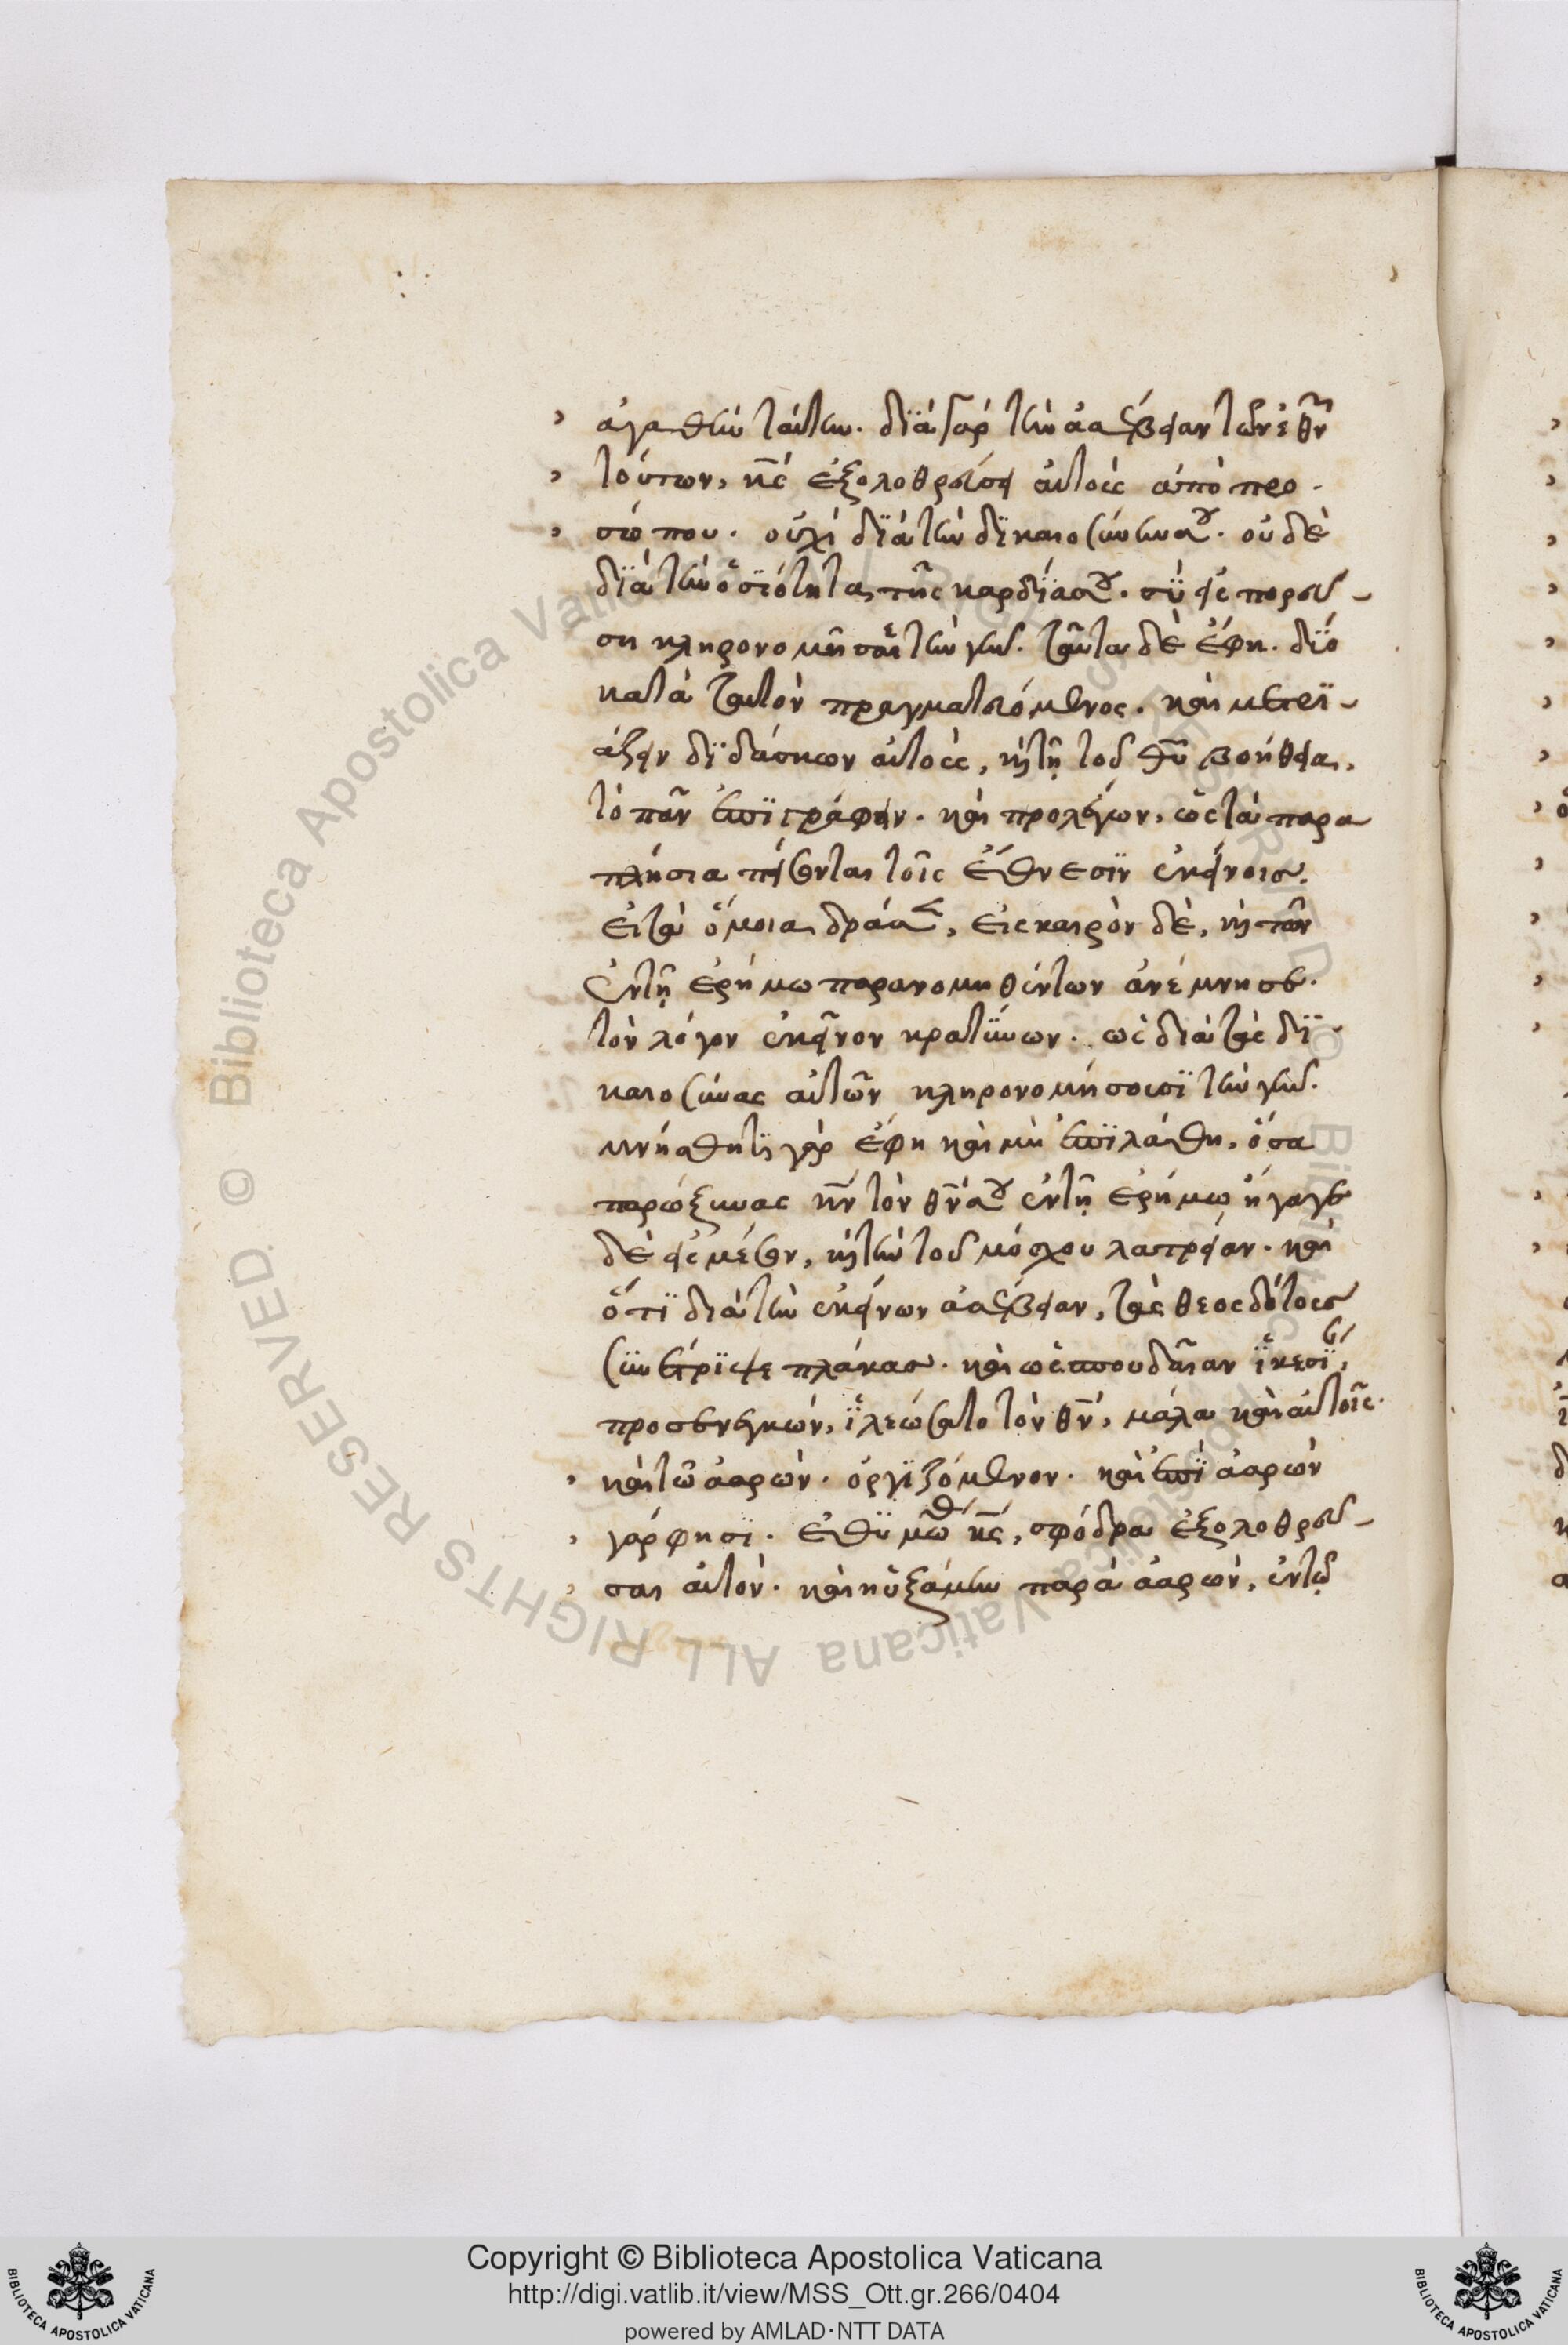 ἀγαθὴν ταύτην. διὰ γὰρ τὴν ἀσέβειαν τῶν ἐθν
τούτων, κς ἐξολοθρεύσει αὐτοὺς ἀπὸ προ-
σώπου. οὐχὶ διὰ τὴν δικαιοσύνην σου. οὐδὲ
διὰ τὴν ὁσιότητα τῆς καρδίας σου. σὺ εἰσπορεύ-
ση κληρονομῆσαι τὴν γῆν. ταῦτα δὲ ἔφη. δύο
κατὰ ταυτὸν πραγματευόμενος. καὶ μετρι-
άζειν διδάσκων αὐτοὺς, καὶ τῇ τοῦ θυ βοήθεια,
τὸ πᾶν ἐπιγράφειν. καὶ προλέγων, ὡς τὰ παρα
πλήσια πείσονται τοῖς ἔθνεσιν ἐκείνοις.
εἰ τὰ ὅμοια δράσ, εἰς καιρὸν δὲ, καὶ τῶν
ἐν τῇ ἐρήμω παρανομηθέντων ἀνέμνησε.
τὸν λόγον ἐκεῖνον κρατύνων. ὡς διὰ τὰς δι
καιοσύνας αὐτῶν κληρονομήσουσι τὴν γῆν.
μνήσθητι γὰρ ἔφη καὶ μὴ ἐπιλάθη, ὅσα
παρώξυνας κν τὸν θν σου ἐν τῇ ἐρήμω ἤγαγε
δὲ εἰς μέσον, καὶ τὴν τοῦ μόσχου λατρείαν. καὶ
ὅτι διὰ τὴν ἐκείνων ἀσέβειαν, τὰς θεοσδότους
συνέτριψε πλάκας. καὶ ὡς σπουδαίαν ἱκεσί,
προσενεγκὼν, ἱλεώσατο τὸν θν, μάλα καὶ αὐτοῖς.
καὶ τῶ ἀαρών. ὀργιζόμενον. καὶ ἐπὶ ἀαρὼν
γάρ φησι. ἐθυμώθ κς, σφόδρα ἐξολοθρεῦ-
σαι αὐτόν. καὶ ηὐξάμην παρὰ ἀαρὼν, ἐν τῷ
Copyright © Biblioteca Apostolica Vaticana
http://digi.vatlib.it/view/MSS_Ott.gr.266/0404
powered by AMLAD·NTT DATA